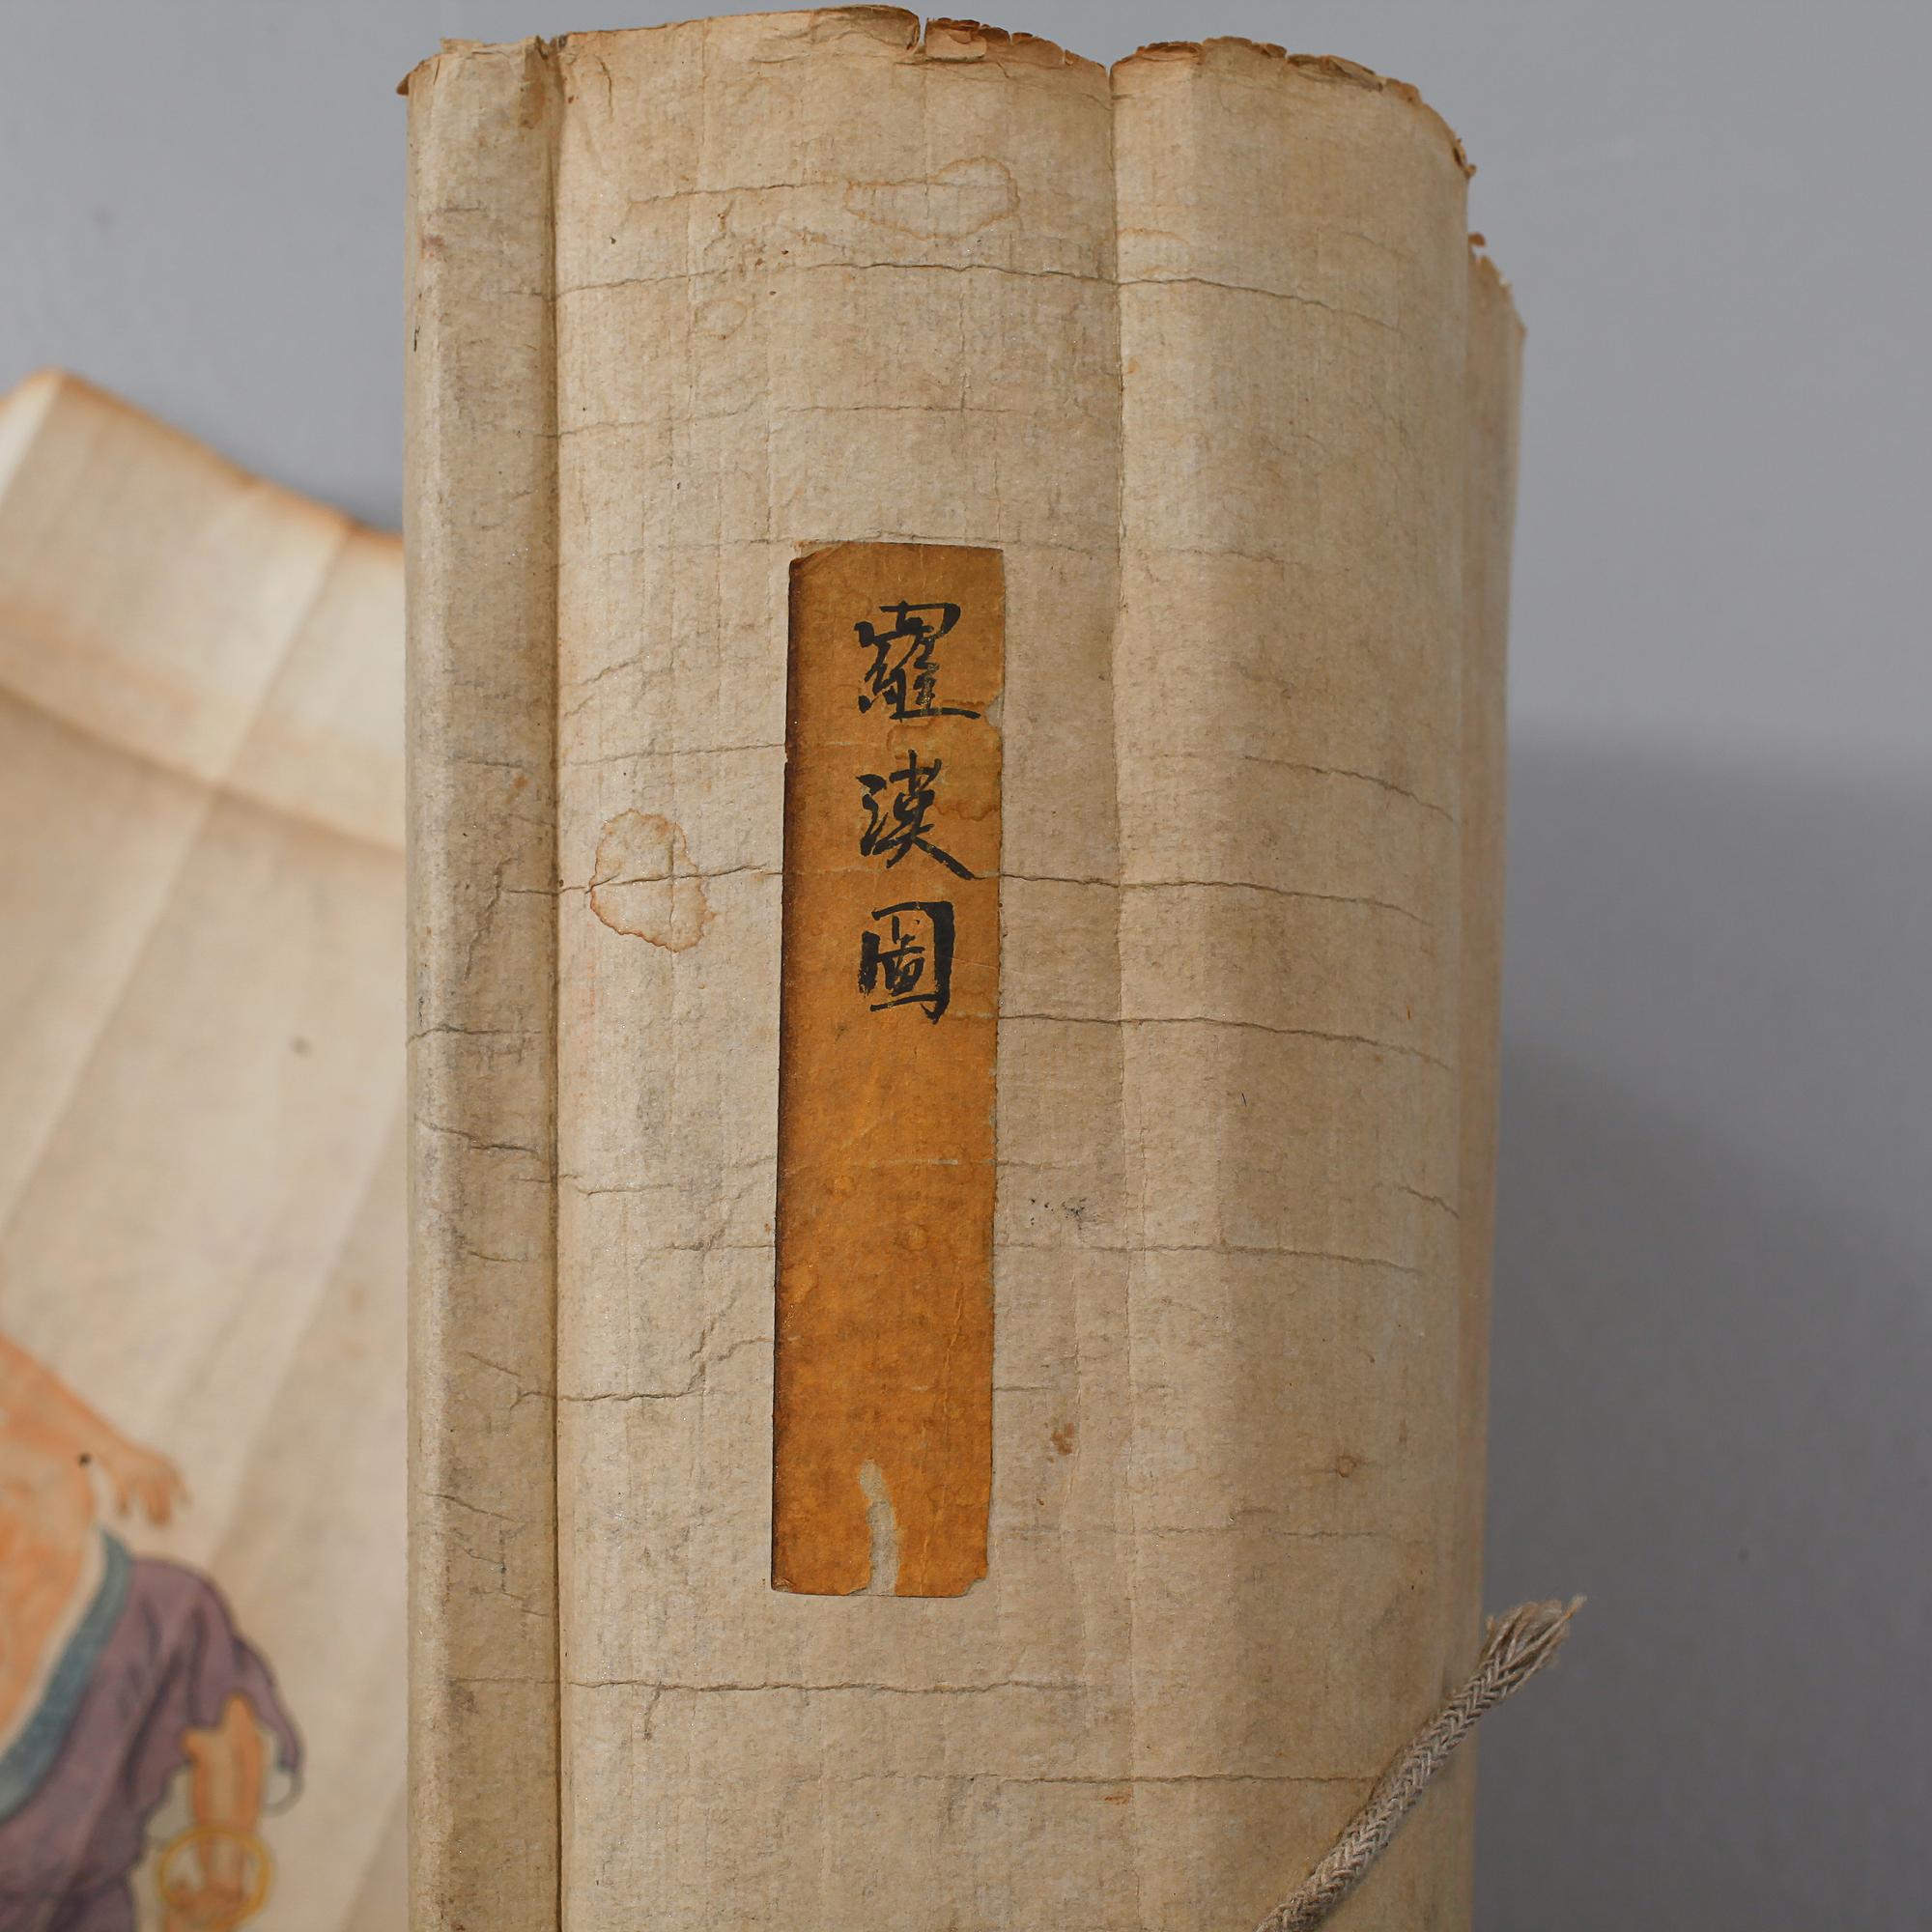 羅漢圖